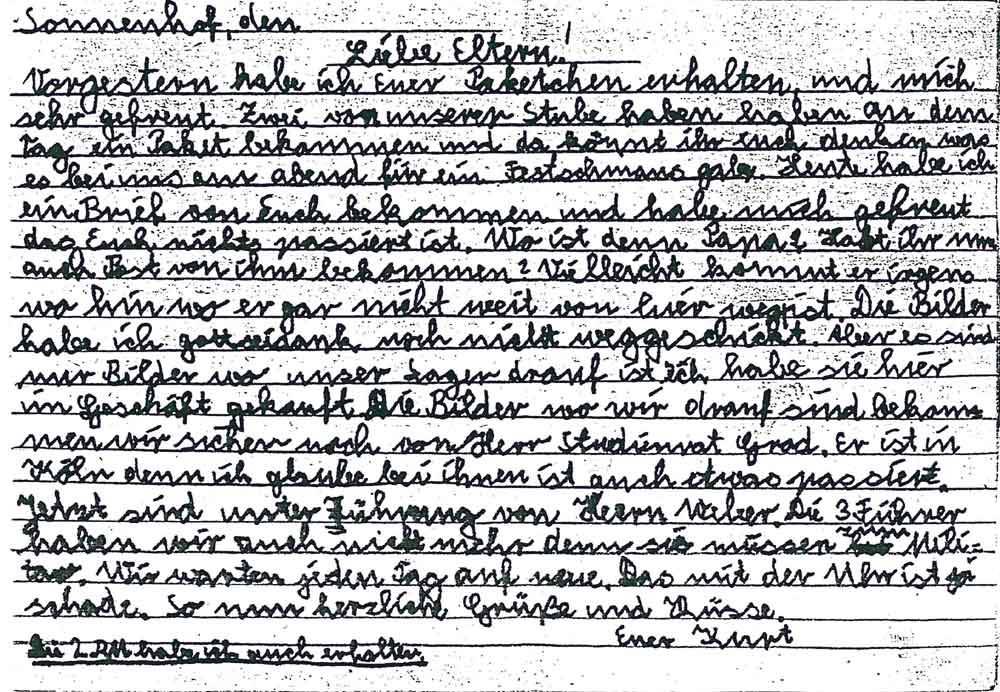 Sonnenhof, den
Liebe Eltern!
Vorgestern habe ich Euer Paketchen erhalten, und mich
sehr gefreut. Zwei von unserer Stube haben haben an dem
Tag ein Paket bekommen und da könnt ihr euch denken was
es bei uns am abend für ein Festschmaus gab. Heute habe ich
ein Brief von Euch bekommen und habe mich gefreut
das Euch nichts passiert ist. Wo ist denn Papa? Habt ihr nun
auch Post von ihm bekommen? Vielleicht kommt er irgend
wo hin wo er gar nicht weit von hier weg ist. Die Bilder
habe ich gottseidank noch nicht weggeschickt. Aber es sind
nur Bilder wo unser Lager drauf ist ich habe sie hier
im Geschäft gekauft. Die Bilder wo wir drauf sind bekom=
men wir sicher noch von Herr Studienrat Grad. Er ist in
Köln denn ich glaube bei ihnen ist auch etwas passiert.
Jetzt sind unter Führung von Herrn Weber. Die 3 Führer
haben wir auch nicht mehr denn sie müssen zum Mili=
tär. Wir warten jeden Tag auf neue. Das mit der Uhr ist ja
schade. So nun herzliche Grüße und Küsse.
Euer Kurt
Die 2 RM habe ich auch erhalten.